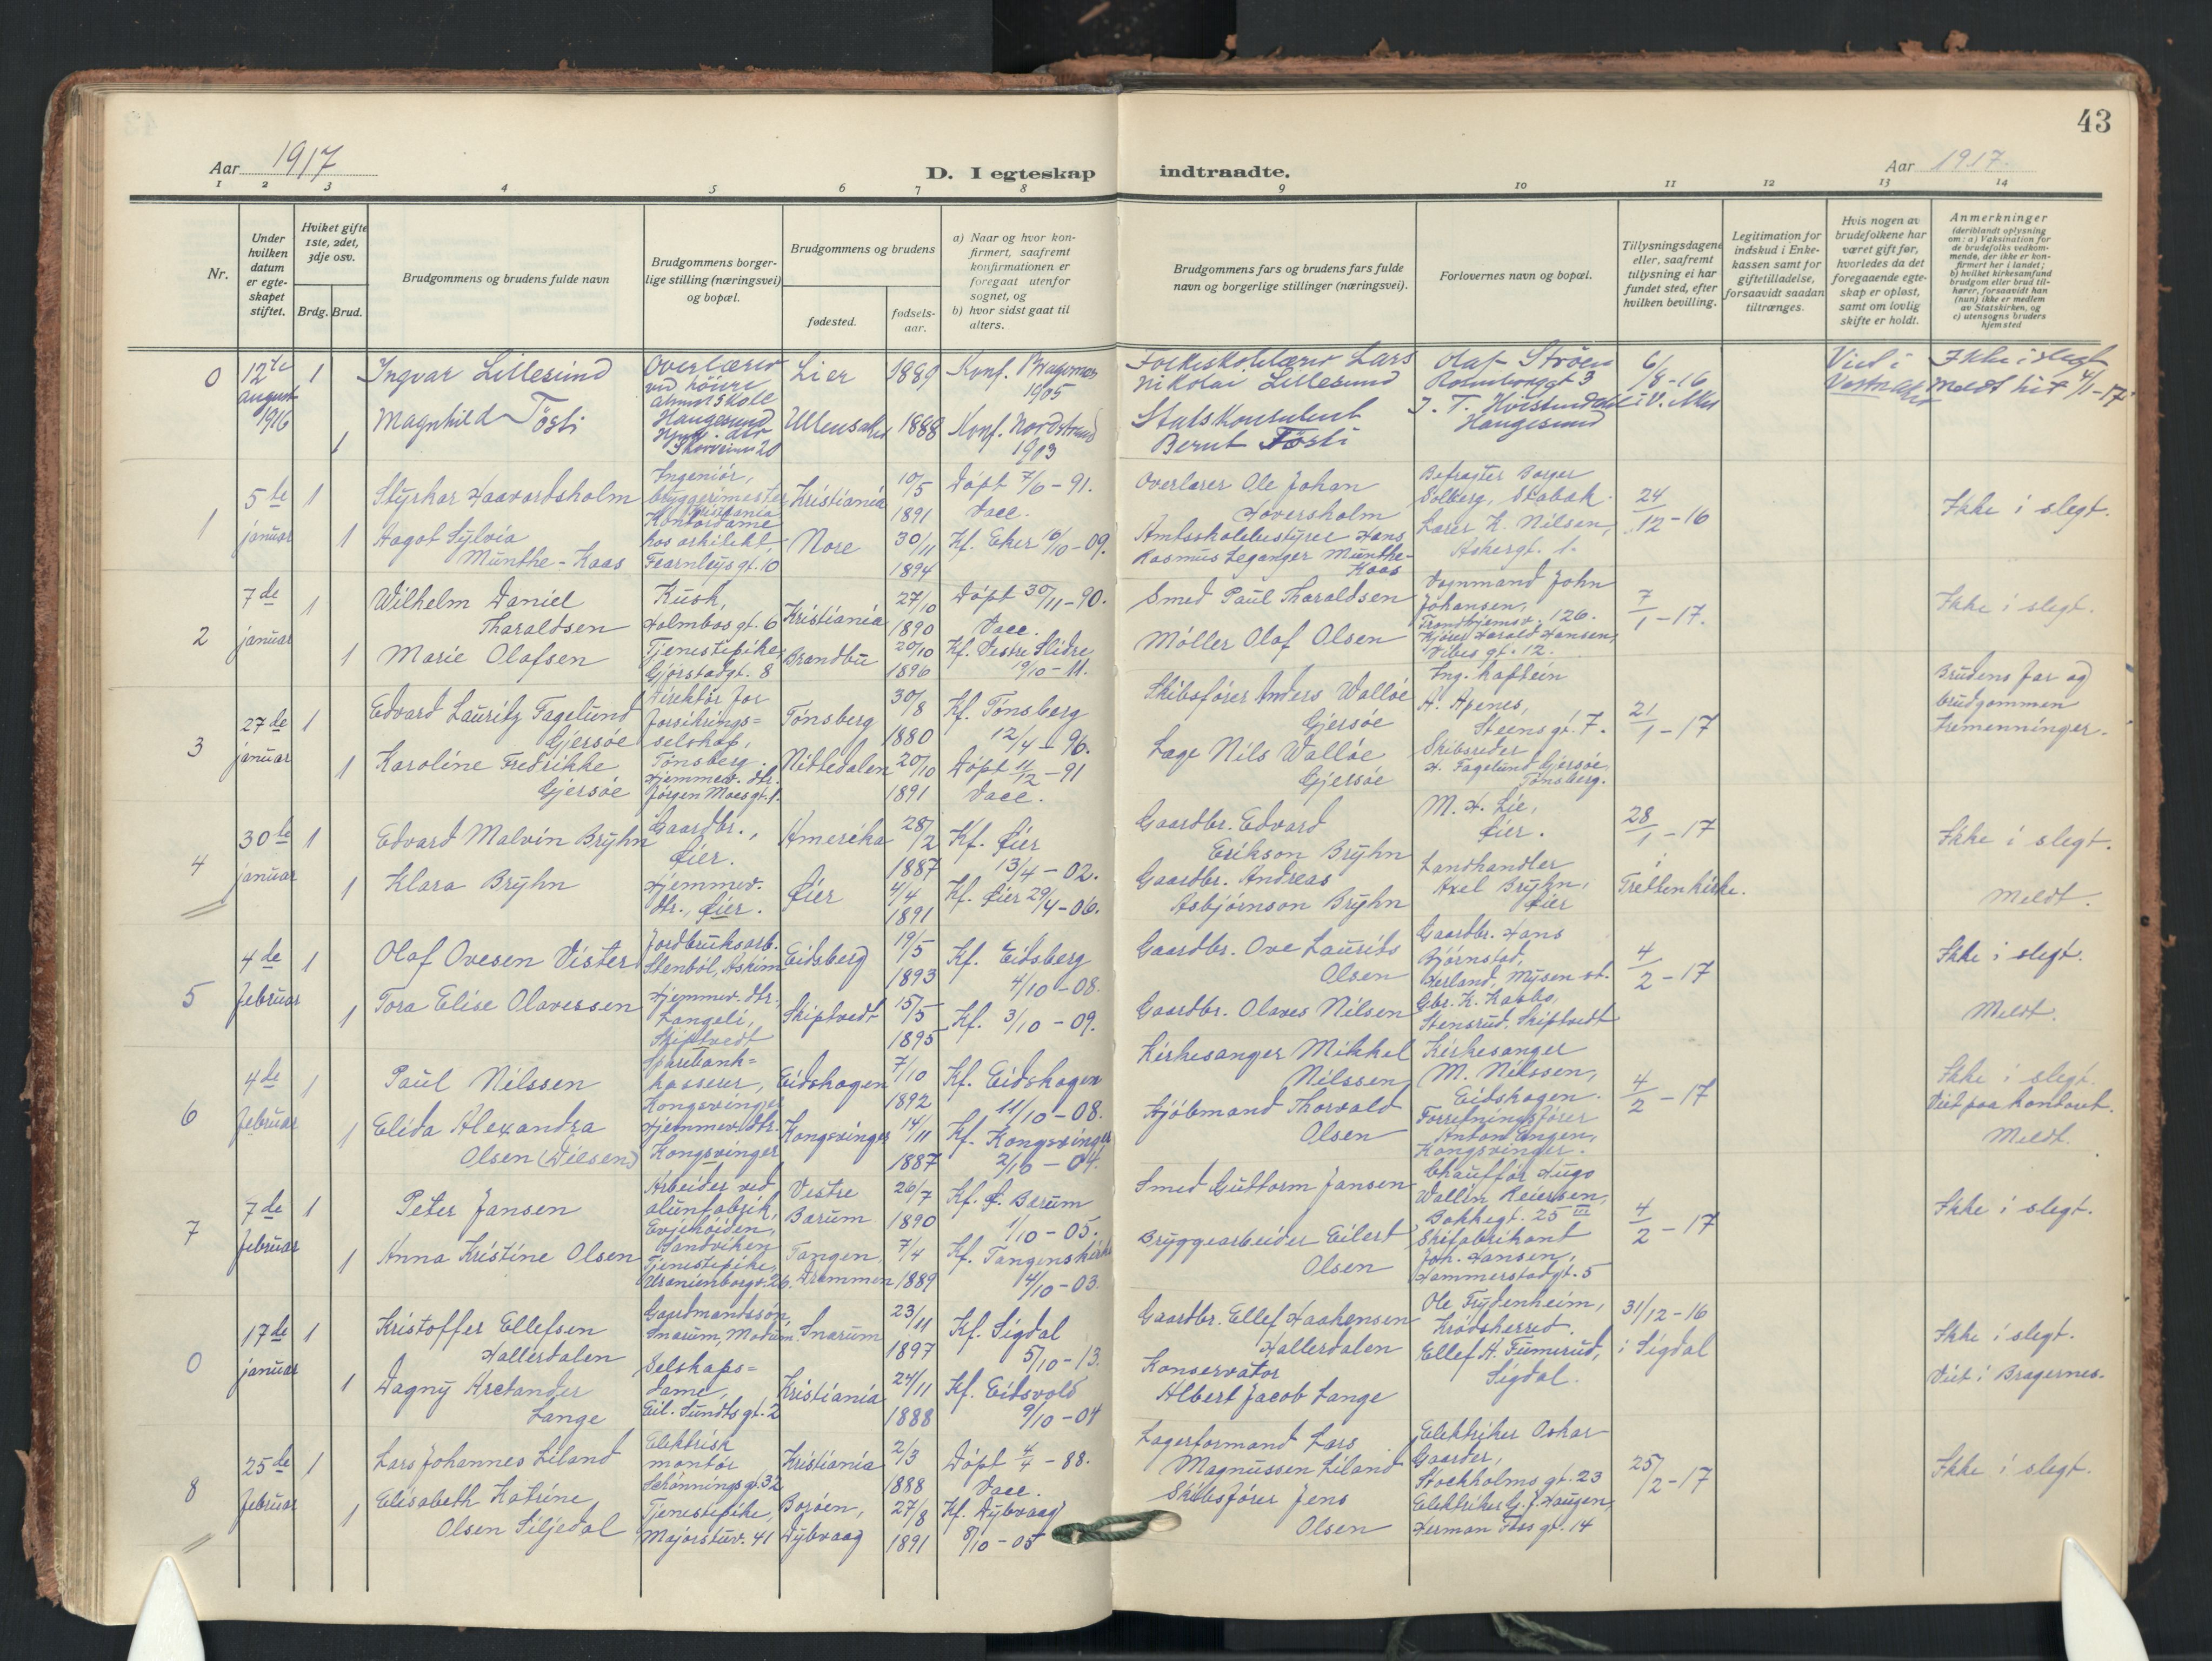 43
Aar 1917
D. I egteskap
indtraadte.
Aar 1917.
1 2 3 4 5 6 7 8 9 10 11 12 13 14
Nr.
Under
hvilken
datum
er egte-
skapet
stiftet.
Hviket gifte
1ste, 2det,
3dje osv.
Brdg. Brud.
Brudgommens og brudens fulde navn
Brudgommens borger-
lige stilling (næringsvei)
og bopæl.
Brudgommens og brudens
fødested.
fødsels-
aar.
a) Naar og hvor kon-
firmert, saafremt
konfirmationen er
foregaat utenfor
sognet, og
b) hvor sidst gaat til
alters.
Brudgommens fars og brudens fars fulde
navn og borgerlige stillinger (næringsvei).
Forlovernes navn og bopæl.
Tillysningsdagene
eller, saafremt
tillysning ei har
fundet sted, efter
hvilken bevilling.
Legitimation for
indskud i Enke-
kassen samt for
giftetilladelse,
forsaavidt saadan
tiltrænges.
Hvis nogen av
brudefolkene har
været gift før,
hvorledes da det
foregaaende egte-
skap er opløst,
samt om lovlig
skifte er holdt.
Anmerkninger
(deriblandt oplysning
om: a) Vaksination for
de brudefolks vedkom-
mende, der ikke er kon-
firmert her i landet;
b) hvilket kirkesamfund
brudgom eller brud til-
hører, forsaavidt han
(hun) ikke er medlem
av Statskirken, og
c) utensogns bruders
hjemsted
0
12te
august
1916
1
1
Ingvar Lillesund
Magnhild Tösti
Overlærer
ved höiere
almuesskole
Haugesund
Lier
Ullensaker
1889
1888
Konf. Bragernes
1905
Konf. Nordstrand
1903
Folkeskolelærer Lars
Nikolai Lillesund
Statskonsulent
Bernt Tösti
Olaf Ströen
Haugesund
6/
/8-16
i V. Aker
Viet i
Vestre Aker
Ikke i slegt
Meldt hit 4/1-17
1
5te
januar
1
1
Styrkar Haavardsholm
Aagot Sylvia
Munthe-Kaas
Ingeniör,
bryggerimester
Kristiania
Kontordame
hos arkitekt,
Fearnleys gt. 10
Kristiania
Nore
10/5
1891
30/11
1894
Döpt 7/6-91.
Vacc.
Kf. Eker 10/10-09.
Overlærer Ole Johan
Hoversholm
Amtsskolebestyrer Hans
Rasmus Leganger Munthe-
Kaas
Befragter Borger
Solberg, Stabæk.
Lærer K. Nilsen,
Askergt. 1.
24
12-16
Ikke i slegt.
2
7de
januar
1
1
Wilhelm Daniel
Tharaldsen
Marie Olafsen
Kusk,
Holmbos gt. 6
Tjenestepike
Gjörstadgt. 8
Kristiania
Brandbu
27/10
1890
20/10
1896
Döpt 30/11-90.
Vacc.
Kf. Vestre Slidre
19/10-11.
Smed Paul Tharaldsen
Möller Olaf Olsen
Vognmand John
Johansen,
Trondhjemsv. 126.
Kjører Harald Hansen,
Vibes gt. 12.
7
1-17.
Ikke i slegt.
3
27de
januar
1
1
Edvard Lauritz Fagelund
Gjersöe
Karoline Fredrikke
Gjersöe
Direktör for
forsikrings=
selskap,
Tönsberg.
Hjemmev. dtr.
Jörgen Moes gt. 1.
Tönsberg
Nittedalen
30/8
1880
20/10
1891
Kf. Tönsberg
12/4-96.
Döpt 11/12-91
Vacc.
Skibsförer Anders Wallöe
Gjersöe
Læge Nils Wallöe
Gjersöe
Ing. kaptein
A. Apenes,
Steens gt. 7.
Skibsreder
H. Fagelund Gjersöe,
Tönsberg.
21
1-17
Brudens far og
brudgommen
tremenninger.
4
30te
januar
1
1
Edvard Malvin Bryhn
Klara Bryhn
Gaardbr.,
Öier.
Hjemmev.
dtr., Öier.
Amerika
Öier
28/2
1887
4/4
1891
Kf. Öier
13/4-02.
Kf. Öier 29/4-06.
Gaardbr. Edvard
Erikson Bryhn
Gaardbr. Andreas
Asbjörnson Bryhn
M. H. Lie,
Öier.
Landhandler
Axel Bryhn,
Öier
28
1-17
i
Tretten kirke.
Ikke i slegt.
Meldt.
5
4de
februar
1
1
Olaf Ovesen Vister
Tora Elise Olavessen
Jordbruksarb.
Stenböl, Askim
Hjemmev. dtr.
Langeli,
Skiptvedt
Eidsberg
Skiptvedt
19/5
1893
15/5
1895
Kf. Eidsberg
4/10-08.
Kf. 3/10-09.
Gaardbr. Ove Laurits
Olsen
Gaardbr. Olaves Nilsen
Gaardbr. Hans
Björnstad,
Herland, Mysen st.
Gbr. K. Kaabo,
Stensrud, Skiptvedt
4
2-17
Ikke i slegt.
Meldt.
6
4de
februar
1
1
Paul Nilssen
Elida Alexandra
Olsen (Nilsen)
Sparebank=
kasserer,
Kongsvinger
Hjemmev. dtr.
Kongsvinger
Eidskogen
Kongsvinger
7/10
1892
14/11
1887
Kf. Eidskogen
11/10-08.
Kf. Kongsvinger
2/10-04.
Kirkesanger Mikkel
Nilssen,
Kjöbmand Thorvald
Olsen
Kirkesanger
M. Nilssen,
Eidskogen.
Forretningsförer
Anton Engen,
Kongsvinger.
4
2-17
Ikke i slegt.
Viet paa kontoret.
Meldt.
7
7de
februar
1
1
Peter Jansen
Anna Kristine Olsen
Arbeider ved
alunfabrik,
Evjehöiden,
Sandviken
Tjenestepike,
Uranienborgv. 26.
Vestre
Bærum
Tangen,
Drammen
26/7
1890
7/4
1889
Kf. Ö. Bærum
1/10-05.
Kf. Tangens kirke
4/10-03.
Smed Guttorm Jansen
Bryggearbeider Eilert
Olsen
Chaufför Hugo
Wallin Reiersen,
Bakkegt. 25 III
Skifabrikant
Joh. Hansen,
Hammerstadgt. 5
4
2-17
Ikke i slegt.
0
17de
januar
1
1
Kristoffer Ellefsen
Hallerdalen
Dagny Arctander
Lange
Gaardmandssön,
Snarum, Modum.
Selskaps=
dame,
Eil. Sundts gt. 2
Snarum
Kristiania
23/11
1897
24/11
1888
Kf. Sigdal
5/10-13.
Kf. Eidsvold
9/10-04
Gaardbr. Ellef Haakensen
Hallerdalen
Konservator
Albert Jacob Lange
Ole Frydenheim,
Krödsherred.
Ellef A. Tumerud,
Sigdal.
31/12-16
i Sigdal
Ikke i slegt.
Viet i Bragernes.
8
25de
februar
1
1
Lars Johannes Liland
Elisabeth Katrine
Olsen Siljedal
Elektrisk
montör
Schönnings gt. 32
Tjenestepike,
Majorstuv. 41
Kristiania
Boröen,
Dybvaag
2/3
1888
27/8
1891
Döpt 4/4-88.
Vacc.
Kf. Dybvaag
8/10-05
Lagerformand Lars
Magnussen Liland
Skibsförer Jens
Olsen
Elektriker Oskar
Gaarder,
Stockholms gt. 23
Elektriker G. J. Haugen,
Herman Foss gt. 14
25/
/2-17
Ikke i slegt.